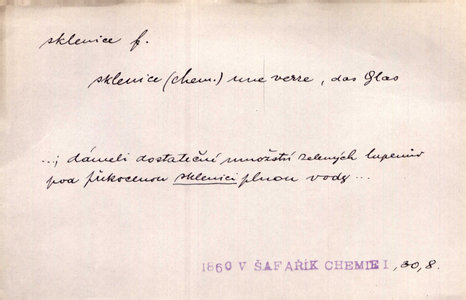 sklenice f.
sklenice (chem.) une verre, das Glas
...; dámeli dostateční množství zelených lupenův
pod překocenou sklenici plnou vody ...
1860 V ŠAFAŘÍK CHEMIE I, 30, 8.